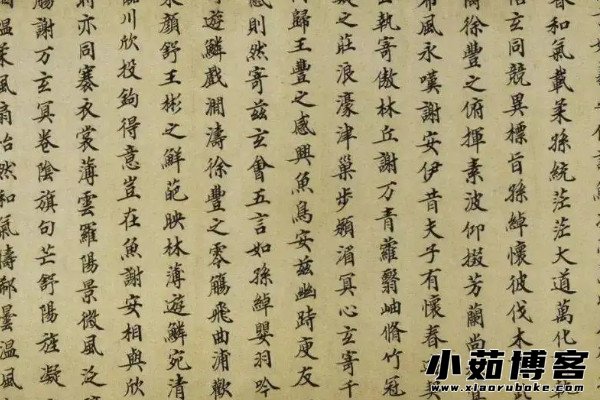 春和氣載柔孫統茫茫大道萬化
悟玄同競異標旨孫綽懷彼伐木
徐豐之俯揮素波仰掇芳蘭尚
希風永嘆謝安伊昔夫子有懷春
執寄傲林丘謝万青蘿翳岫脩竹冠
凝之莊浪濠津巢步潁湄冥心玄寄千
歸王豐之感興魚鳥安茲幽峙庾友
感則然寄茲玄會五言如孫綽嬰羽吟
遊鱗戲澗濤徐豐之零觴飛曲浦歡
顏舒王彬之鮮葩映林薄遊鱗宛清
臨川欣投鉤得意豈在魚謝安相與欣
則亦同褰衣裳薄雲羅陽景微風泛
觴謝万玄冥卷陰旗句芒舒陽旌凝
溫柔風扇怡然和氣郗曇溫風
小茹博客
www.xiaoruboke.com